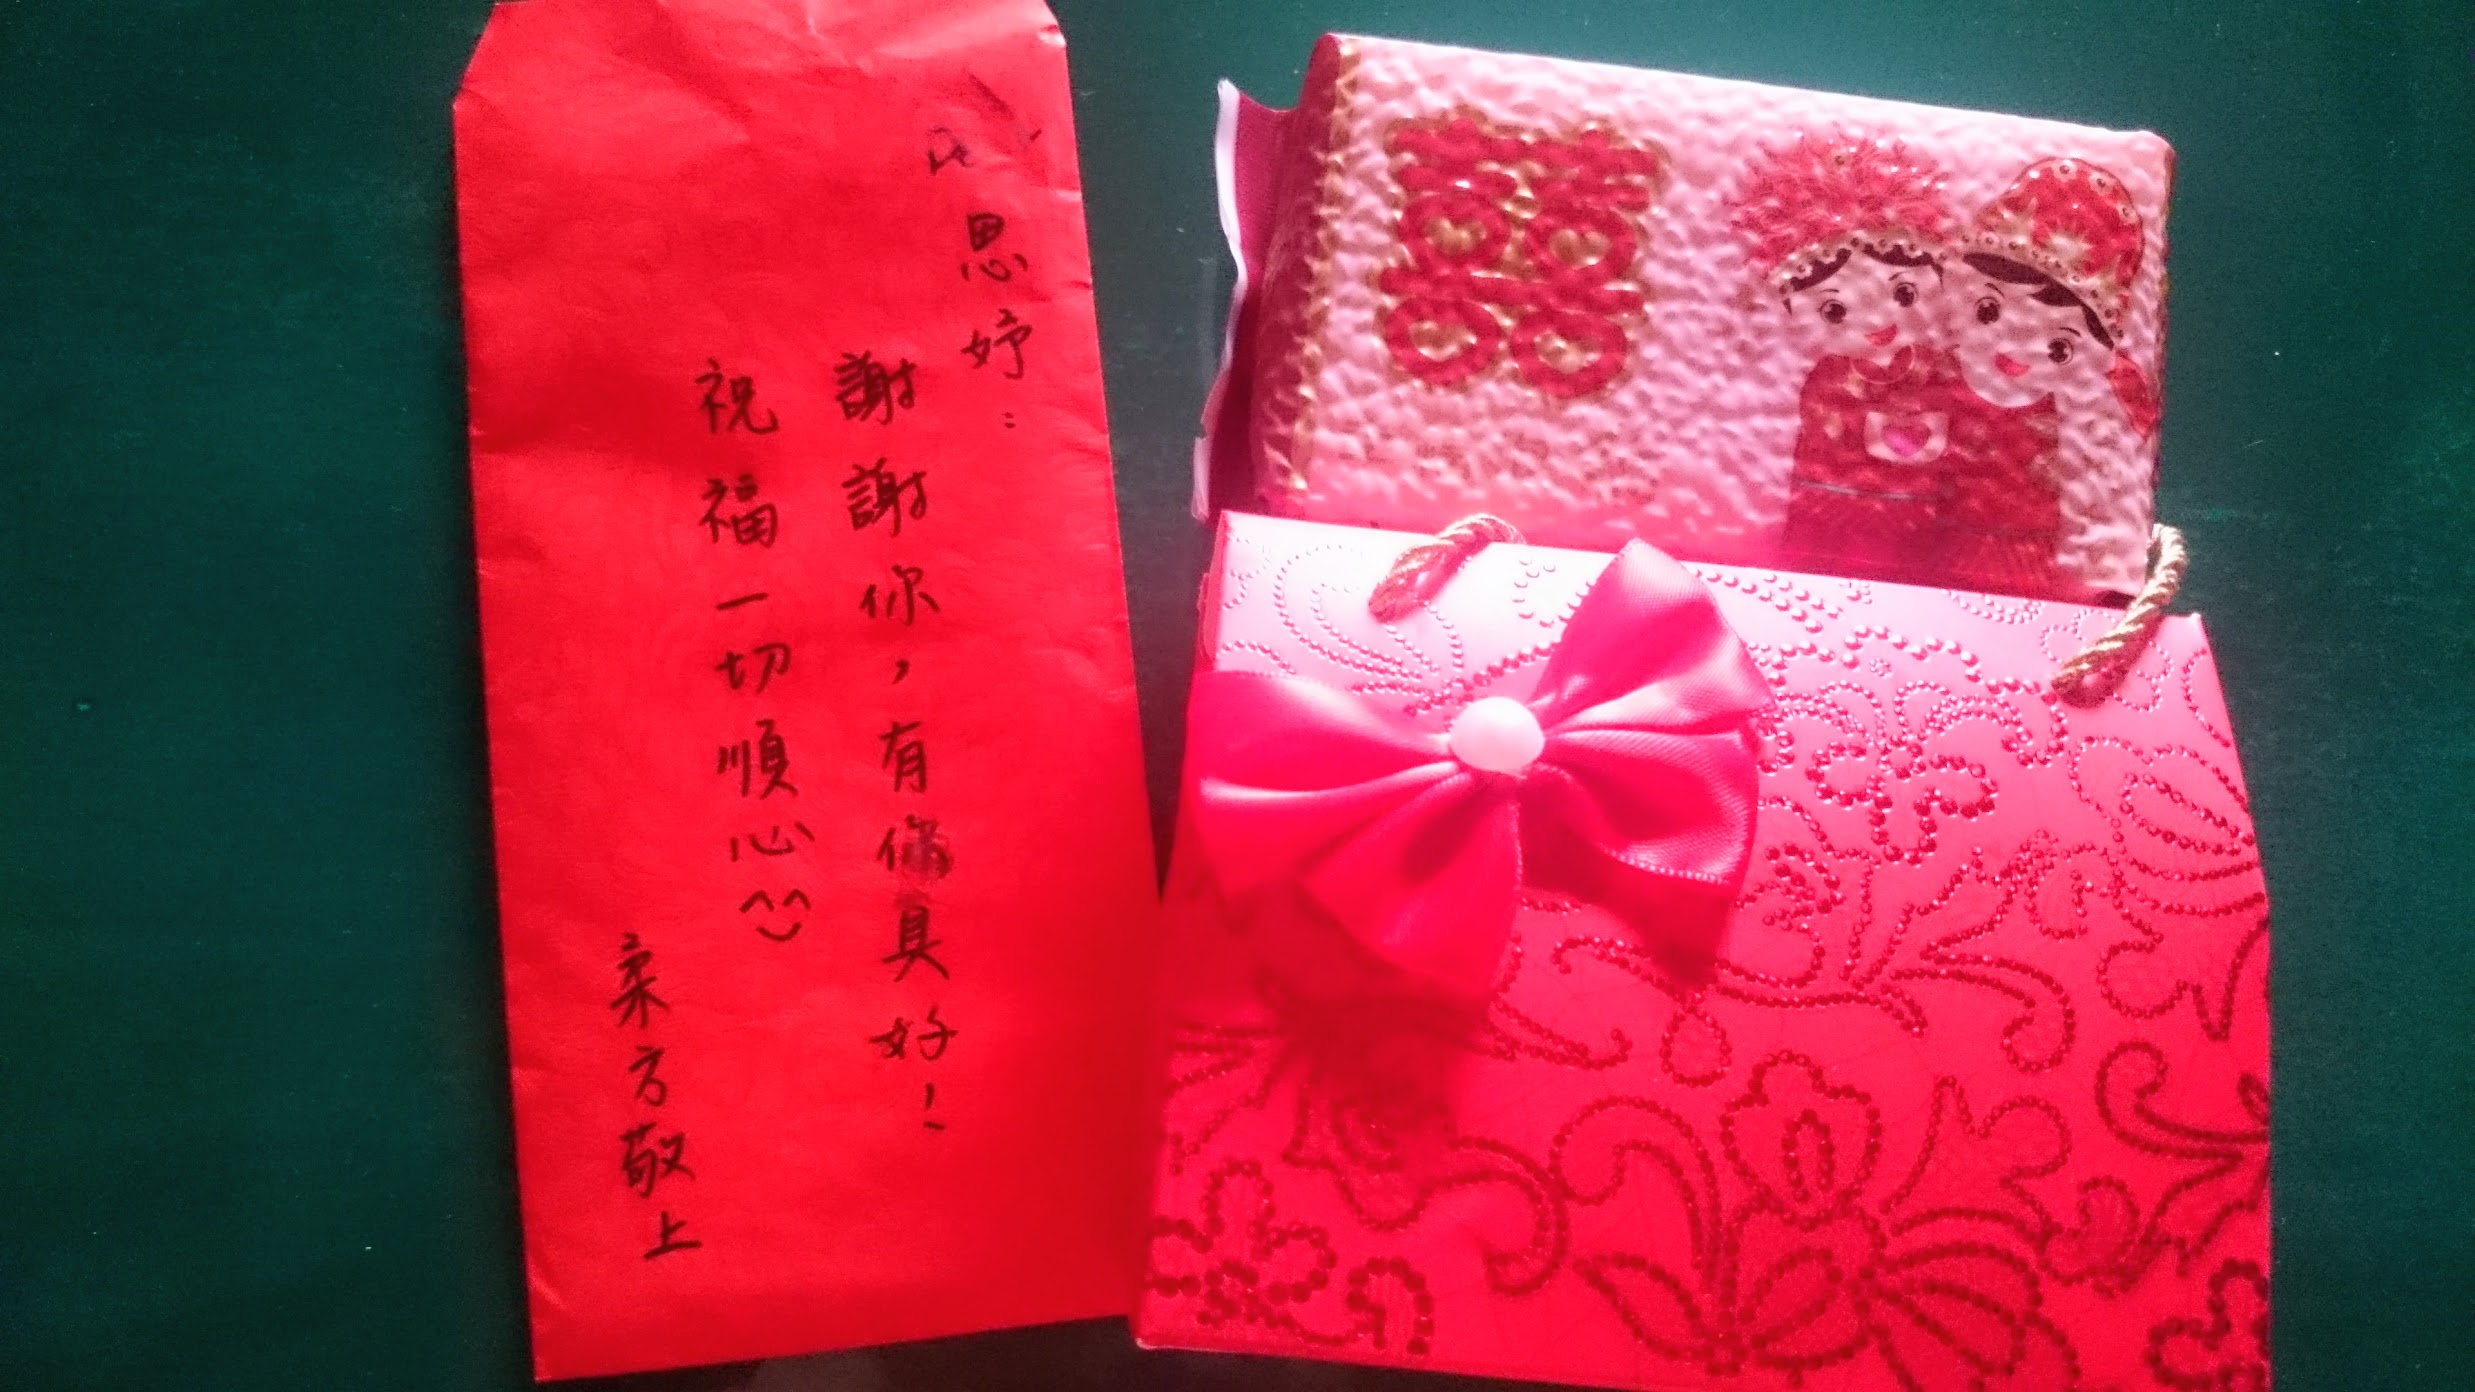 思妤：
謝謝你，有你真好！
祝福一切順心^^
柔方敬上
囍